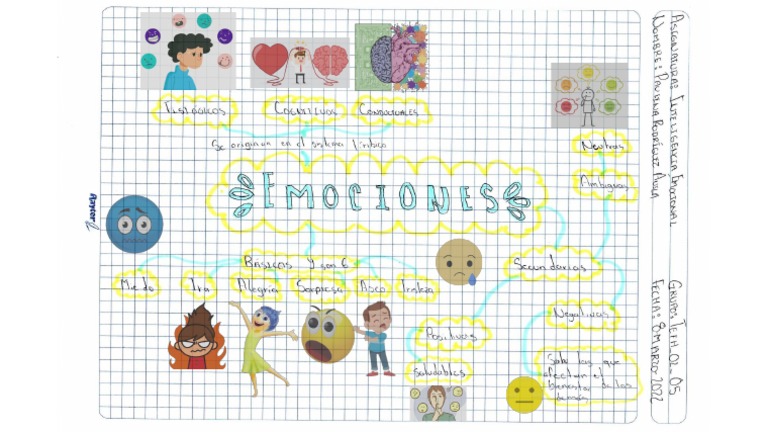 Fisiológicos
Cognitivos
Conductuales
Se originan en el sistema límbico
EMOCIONES
Básicas y son 6
Miedo
Ira
Alegría
Sorpresa
Asco
Tristeza
Secundarias
Neutras
Ambiguas
Positivas
Saludables
Negativas
Son las que
afectan el
bienestar de las
demás
ASIGNATURA: INTELIGENCIA EMOCIONAL
NOMBRE: PAULINA RODRÍGUEZ ÁVILA
FECHA: 8 MARZO 2022